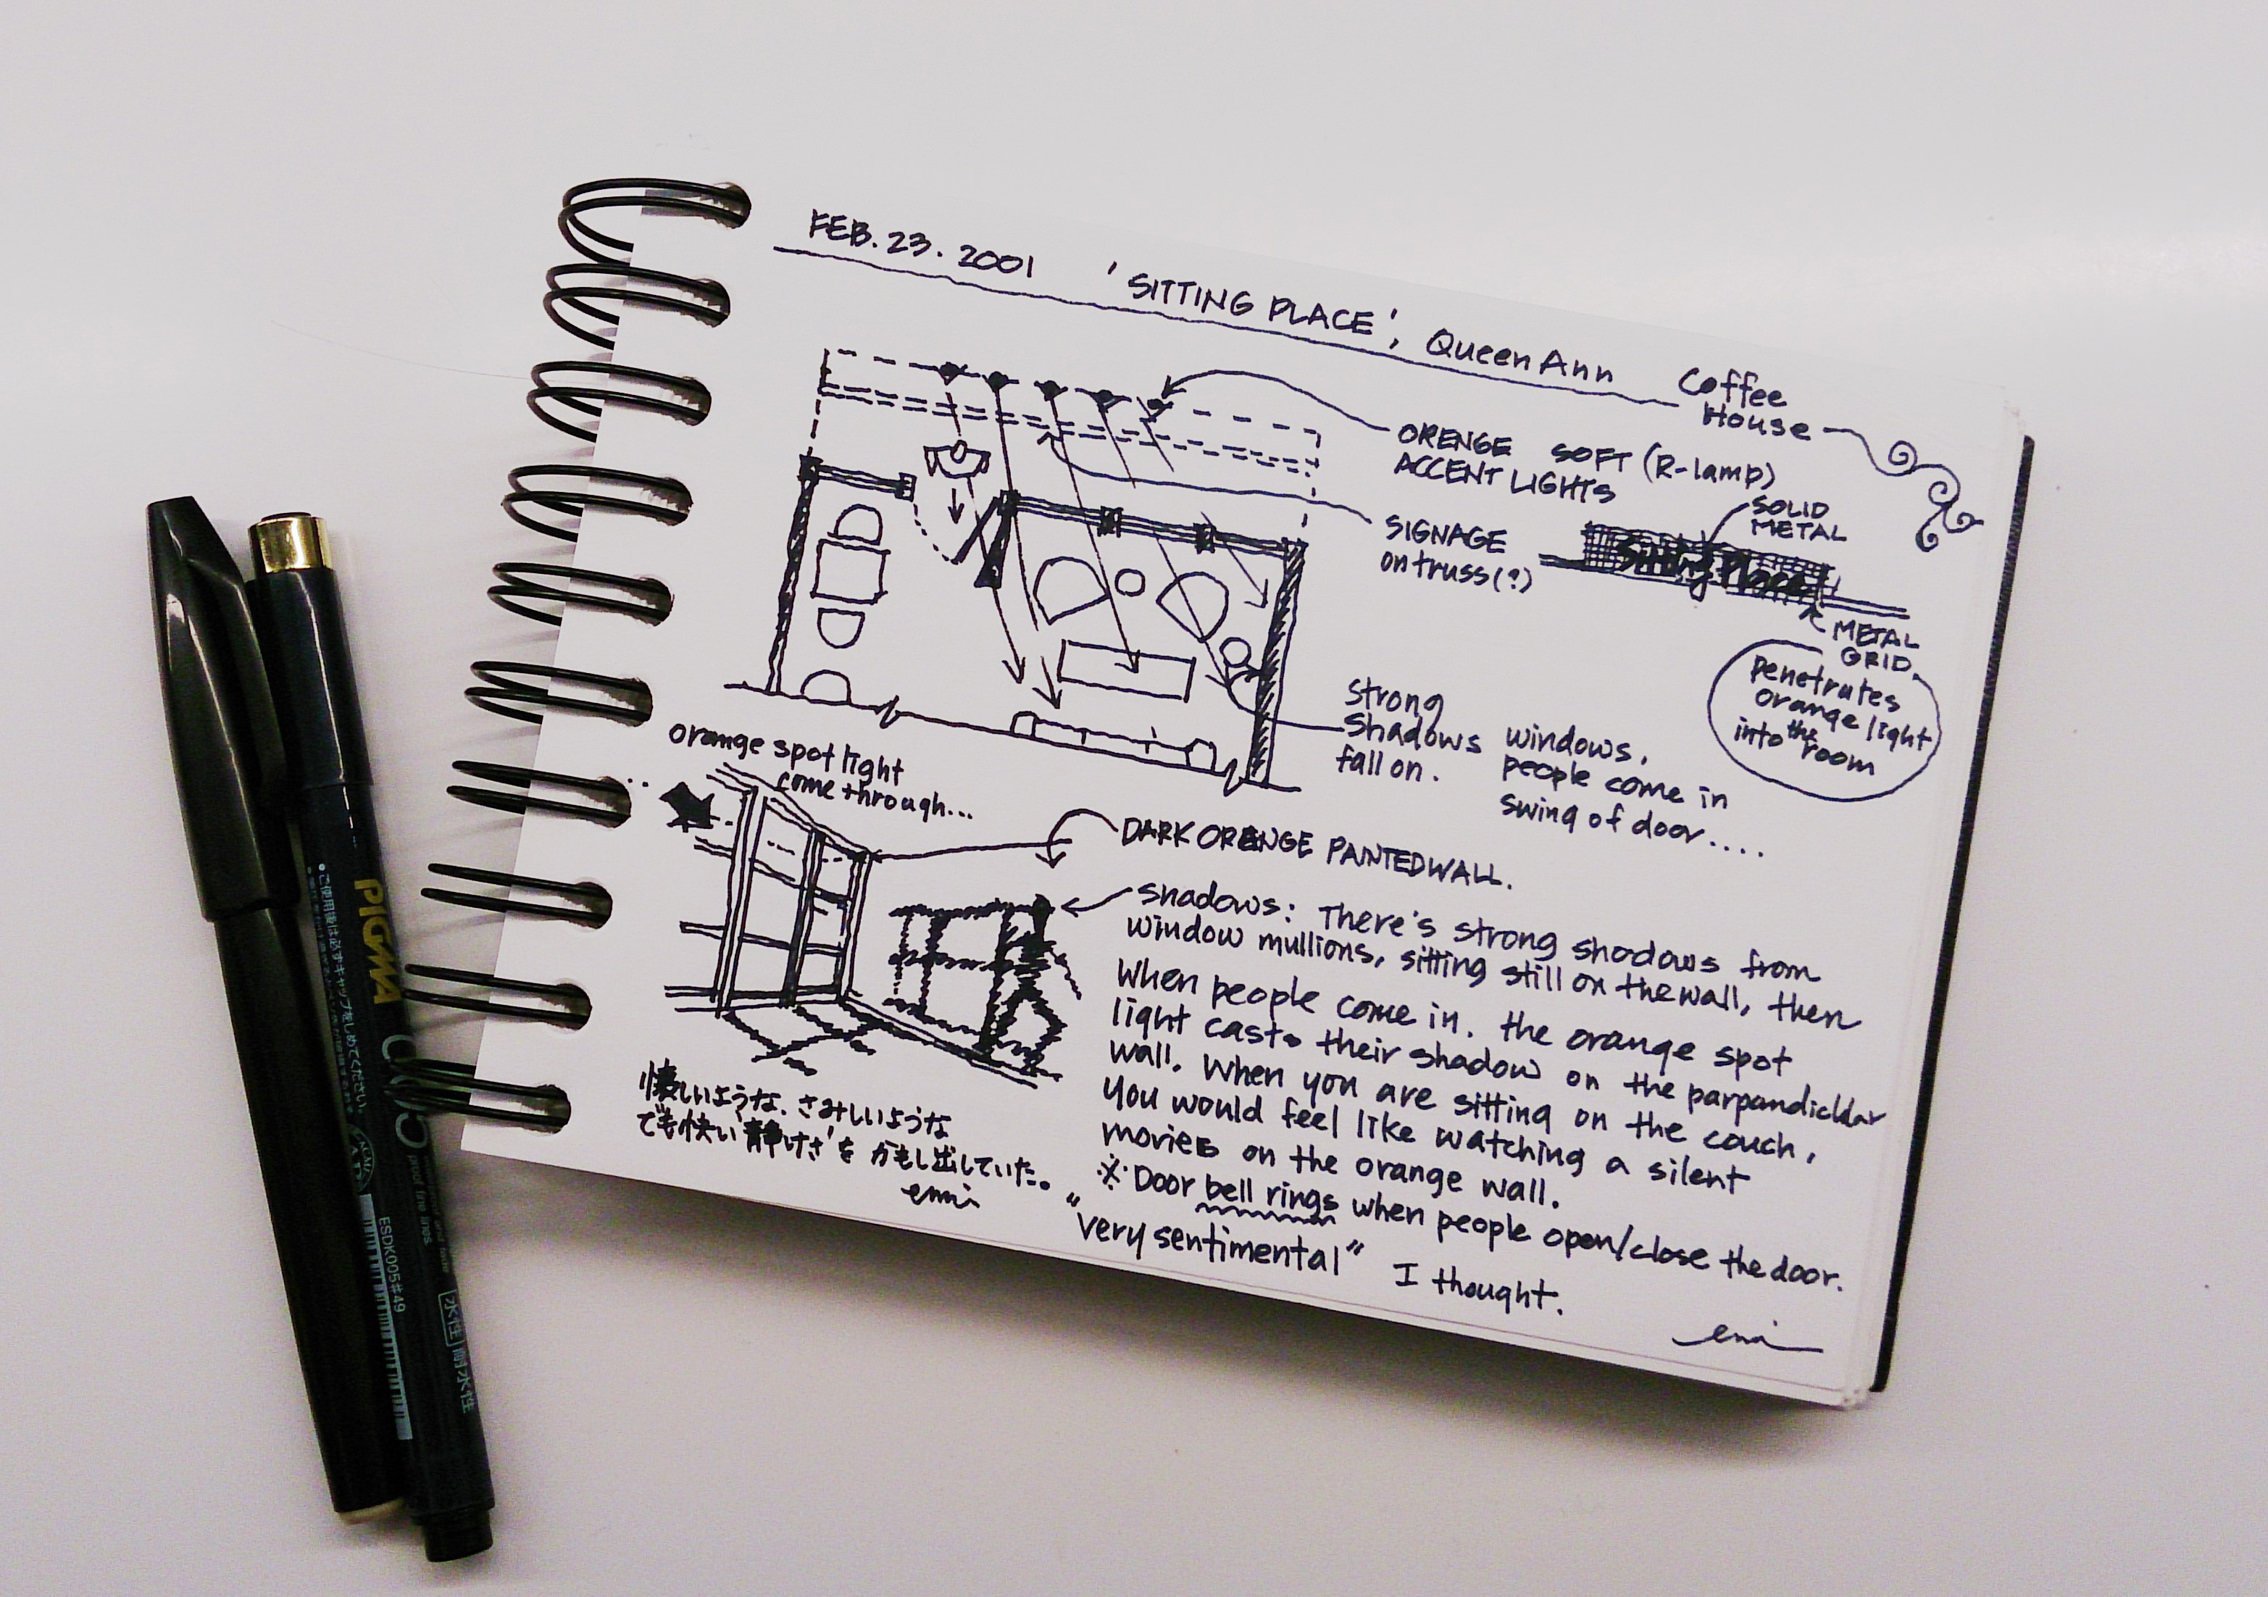 FEB. 23. 2001 'SITTING PLACE', Queen Ann Coffee
House
ORENGE SOFT (R-lamp)
ACCENT LIGHTS
SIGNAGE
on truss(?)
SOLID
METAL
Sitting Place
METAL
GRID.
penetrates
orange light
into the room
Strong
Shadows
fall on.
windows,
people come in
swing of door....
orange spot light
come through...
DARK ORENGE PAINTED WALL.
shadows: There's strong shadows from
window mullions, sitting still on the wall, then
when people come in. the orange spot
light cast their shadow on the parpandicklar
wall. When you are sitting on the couch,
you would feel like watching a silent
movies on the orange wall.
※ Door bell rings when people open/close the door.
"very sentimental" I thought.
emi
懐しいような、さみしいような
でも快い'静けさ'を かもし出していた。
emi
PIGMA
005
proof fine lines
ESDK005#49
水性
耐水性
●ご使用後は必ずキャップをしめてください。